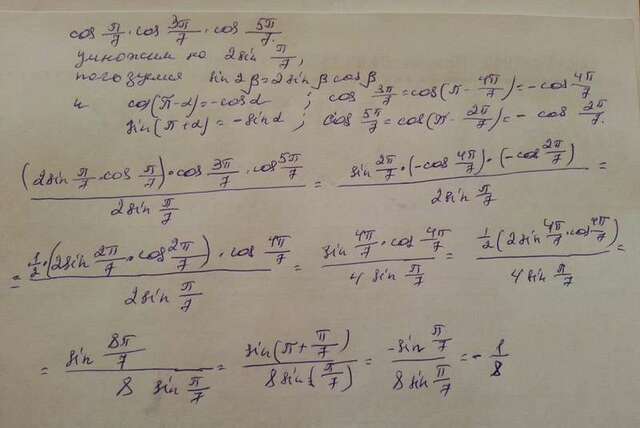 cos π/7 · cos 3π/7 · cos 5π/7.
умножим на 2sin π/7,
пользуемся sin2β=2sinβcosβ
и cos(π-α)=-cosα ; cos 3π/7=cos(π-4π/7)=-cos 4π/7
sin(π+α)=-sinα ; cos 5π/7=cos(π-2π/7)=-cos 2π/7.
((2sin π/7 · cos π/7)·cos 3π/7 · cos 5π/7)/(2sin π/7) = (sin 2π/7 ·(-cos 4π/7)·(-cos 2π/7))/(2sin π/7) =
= (1/2·(2sin 2π/7 · cos 2π/7)·cos 4π/7)/(2sin π/7) = (sin 4π/7 · cos 4π/7)/(4 sin π/7) = (1/2(2sin 4π/7 · cos 4π/7))/(4 sin π/7) =
= (sin 8π/7)/(8 sin π/7) = (sin(π+π/7))/(8sin(π/7)) = (-sin π/7)/(8sin π/7) = - 1/8